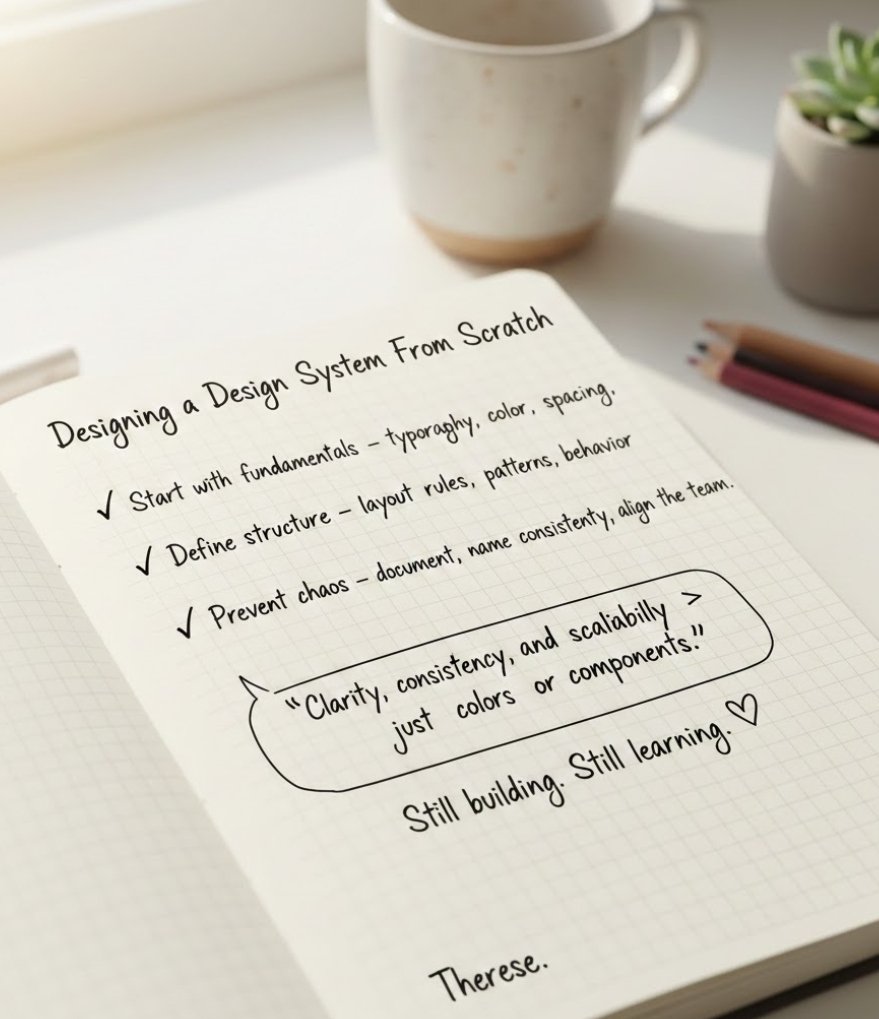 Designing a Design System From Scratch
✓ Start with fundamentals – typoraghy, color, spacing.
✓ Define structure – layout rules, patterns, behavior
✓ Prevent chaos – document, name consistenty, align the team.
“Clarity, consistency, and scaliabilly >
just colors or components.”
Still building. Still learning.♡
Therese.